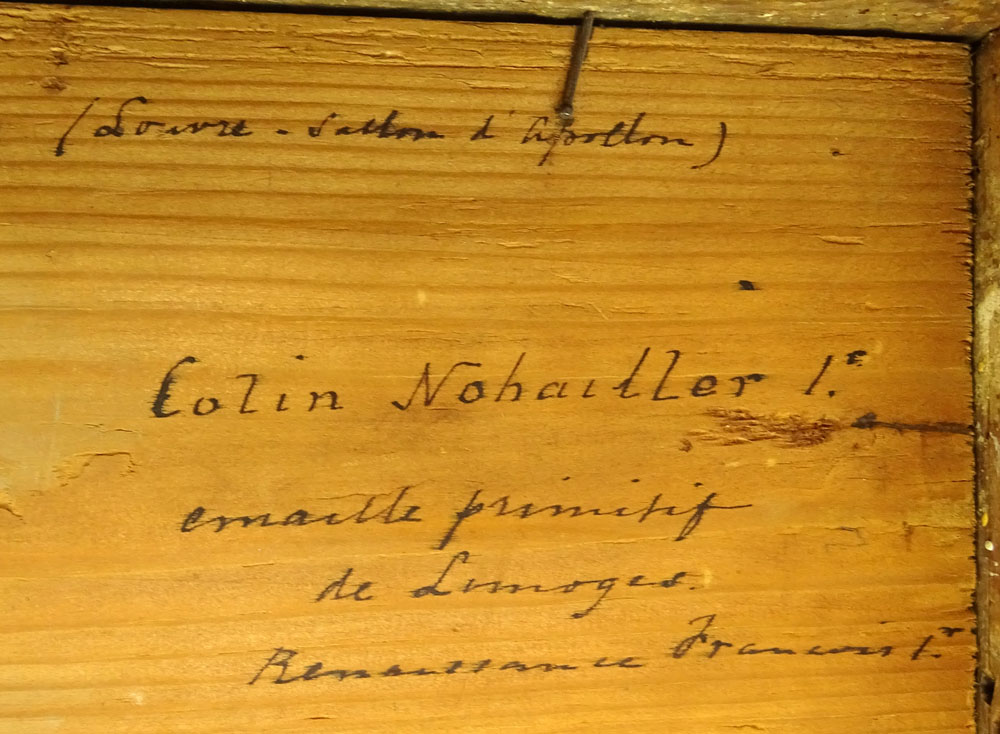 (Louvre - Sallon d'Apollon)
Colin Nohailler 1.r
emaille primitif
de Limoges.
Renaissance Francois 1.r